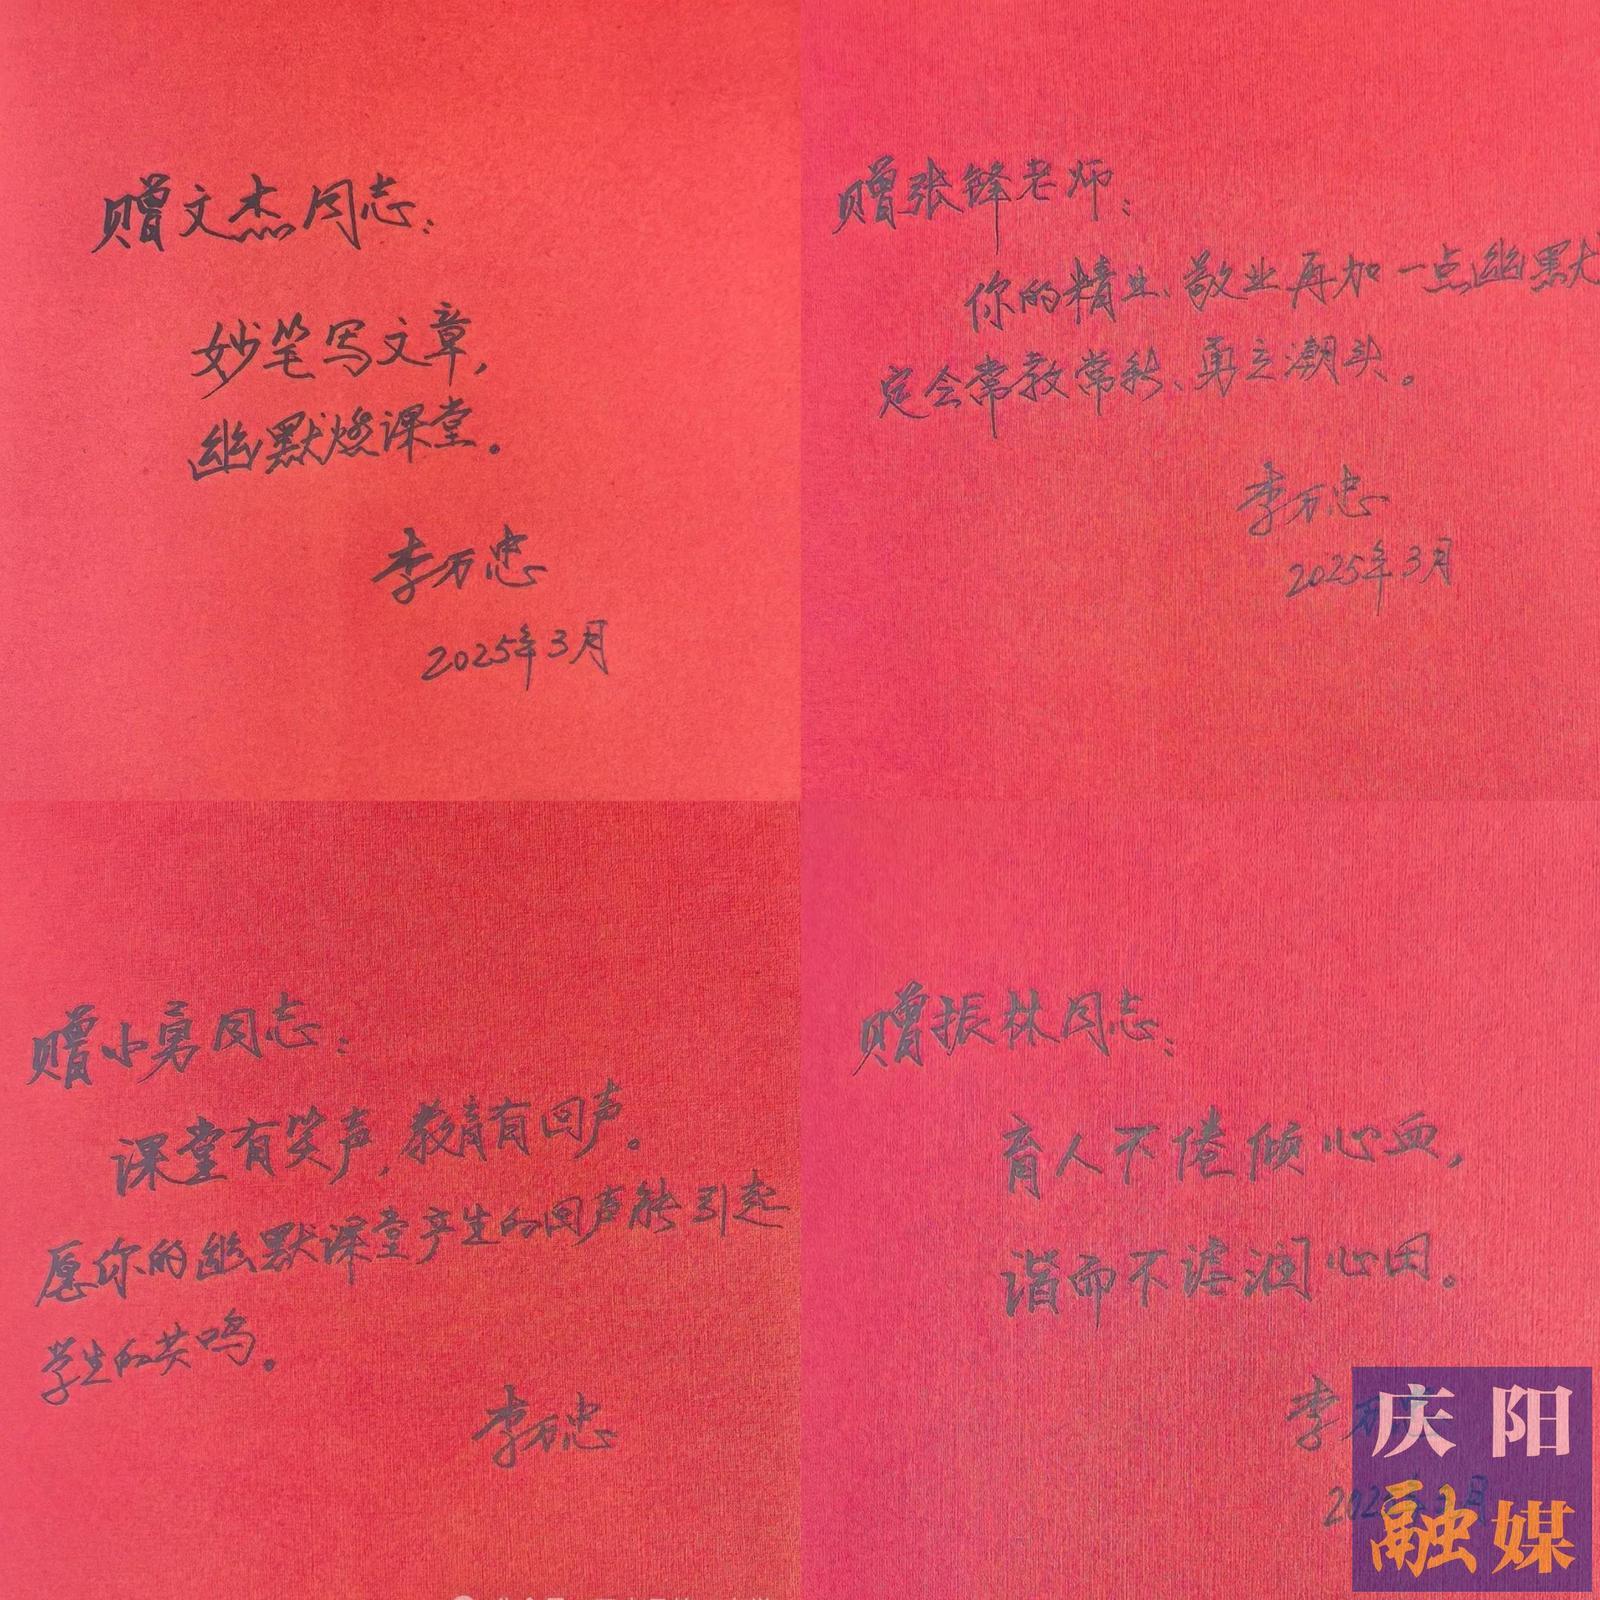 赠文杰同志：
妙笔写文章，
幽默燃课堂。
李万忠
2025年3月
赠张锋老师：
你的精业、敬业再加一点幽默
定会常教常新、勇立潮头。
李万忠
2025年3月
赠小勇同志：
课堂有笑声，教育有回声。
愿你的幽默课堂产生的回声能引起
学生的共鸣。
李万忠
赠振林同志：
育人不倦倾心血，
谐而不谑润心田。
李万忠
2025年3月
庆阳
融媒